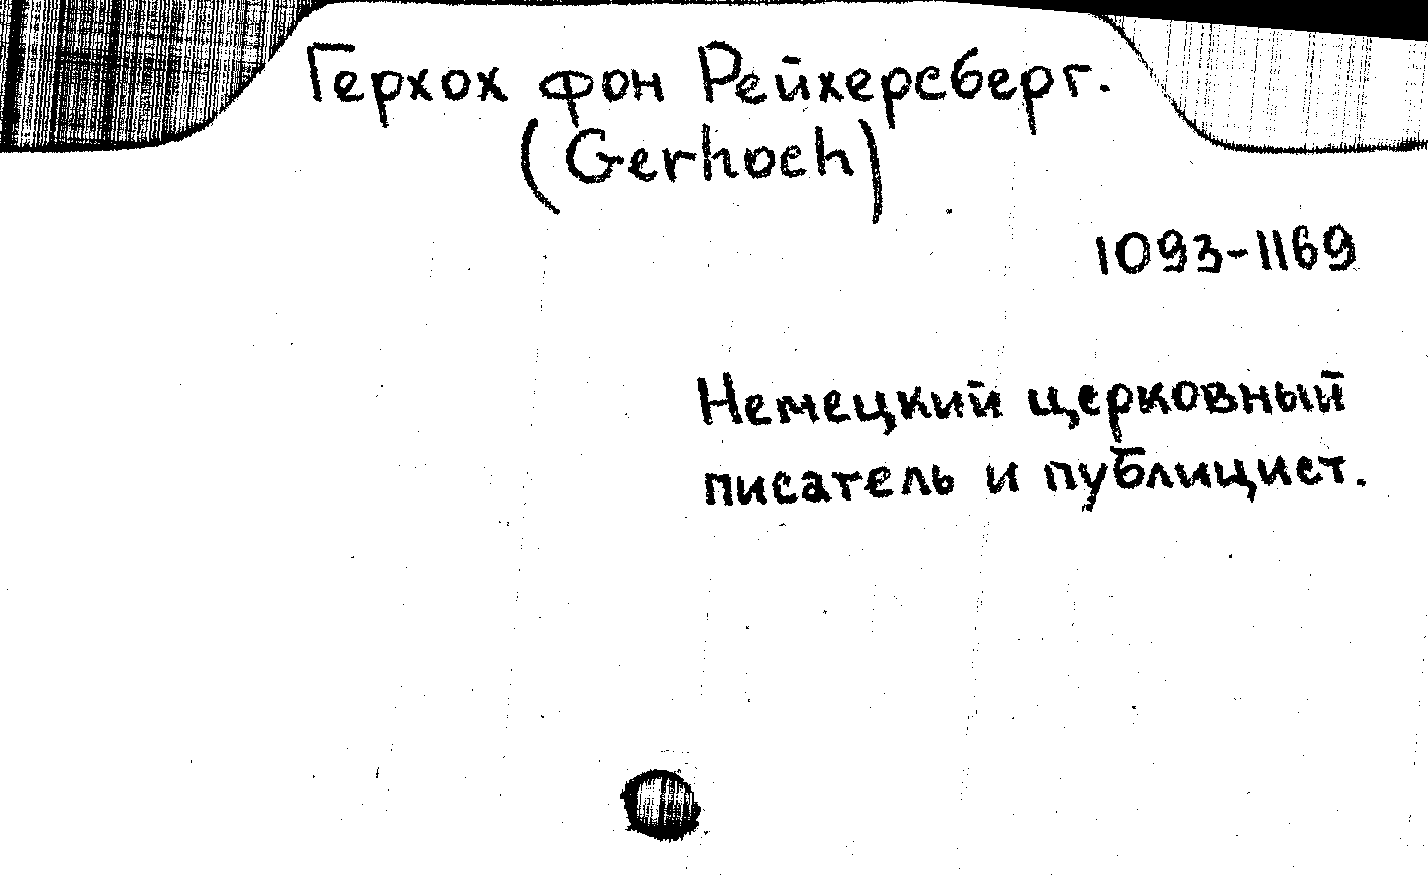 Герхох фон Рейхерсберг.
(Gerhoch)
1093-1169
Немецкий церковный
писатель и публицист.